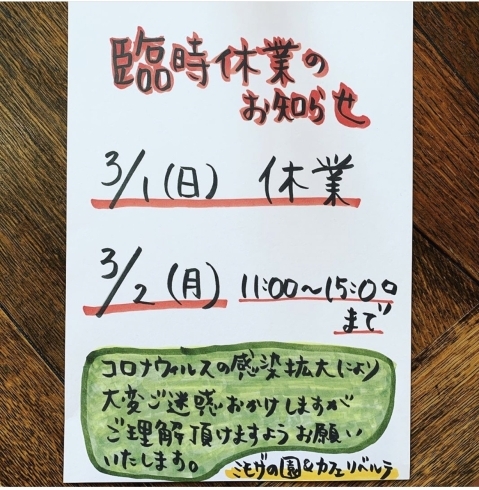 臨時休業の
お知らせ
3/1(日) 休業
3/2(月) 11:00〜15:00
まで
コロナウィルスの感染拡大により
大変ご迷惑おかけしますが
ご理解頂けますようお願い
いたします。
ミモザの園&カフェリベルテ